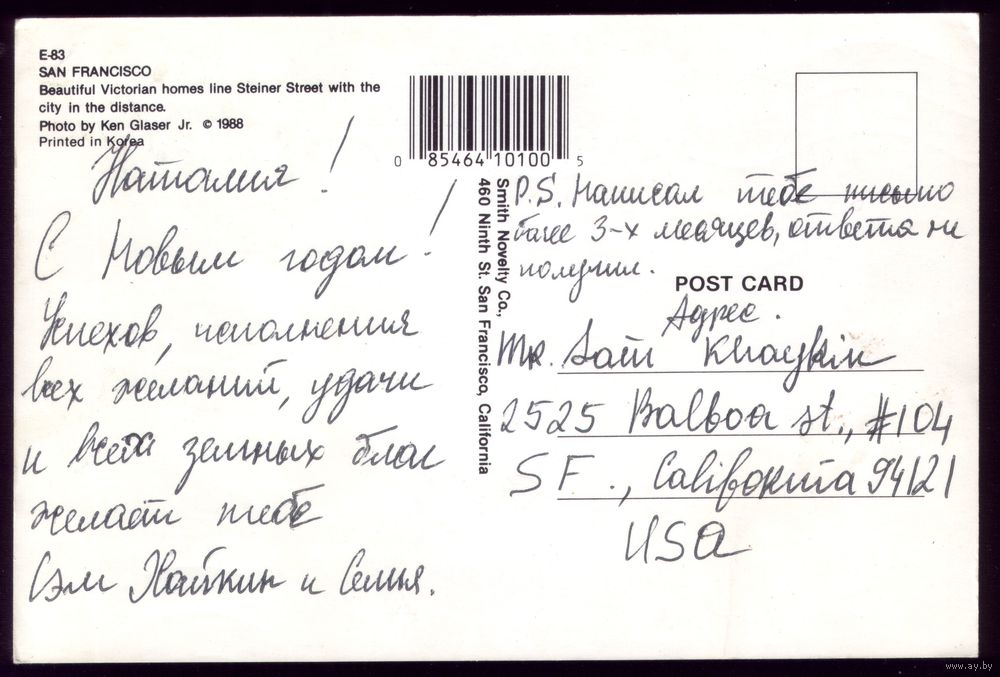 E-83
SAN FRANCISCO
Beautiful Victorian homes line Steiner Street with the
city in the distance.
Photo by Ken Glaser Jr. © 1988
Printed in Korea
Наталия!
С Новым годом!
Успехов, исполнения
всех желаний, удачи
и всех земных благ
желает тебе
Сэм Хайкин и Семья.
0 85464 10100 5
Smith Novelty Co.,
460 Ninth St. San Francisco, California
P.S. Написал тебе письмо
более 3-х месяцев, ответа не
получил.
POST CARD
Адрес.
Mr. Sam Khaykin
2525 Balboa st., #104
SF., California 94121
USA
www.ay.by